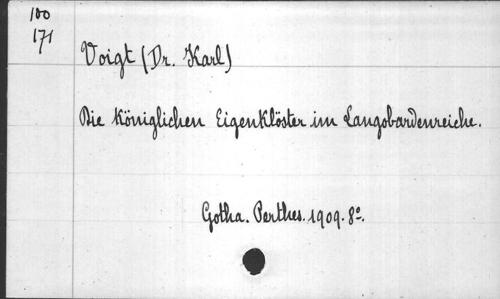 100
171
Voigt (Dr. Karl)
Die Königlichen Eigenklöster im Langobardenreiche.
Gotha. Perthes. 1909. 8º.